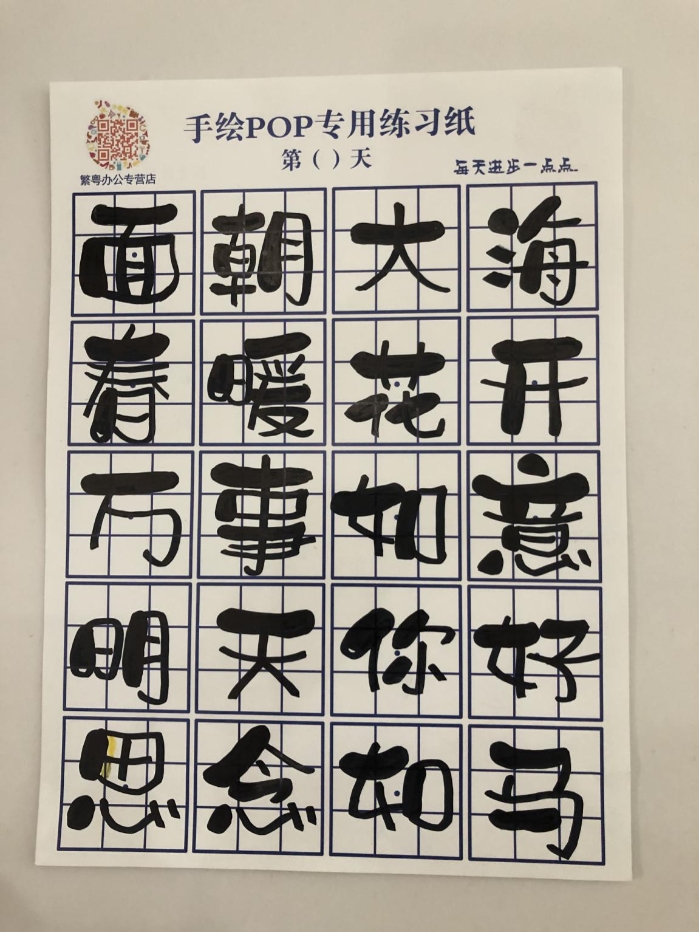 手绘POP专用练习纸
第（ ）天
繁粤办公专营店
每天进步一点点
面朝大海
春暖花开
万事如意
明天你好
思念如马